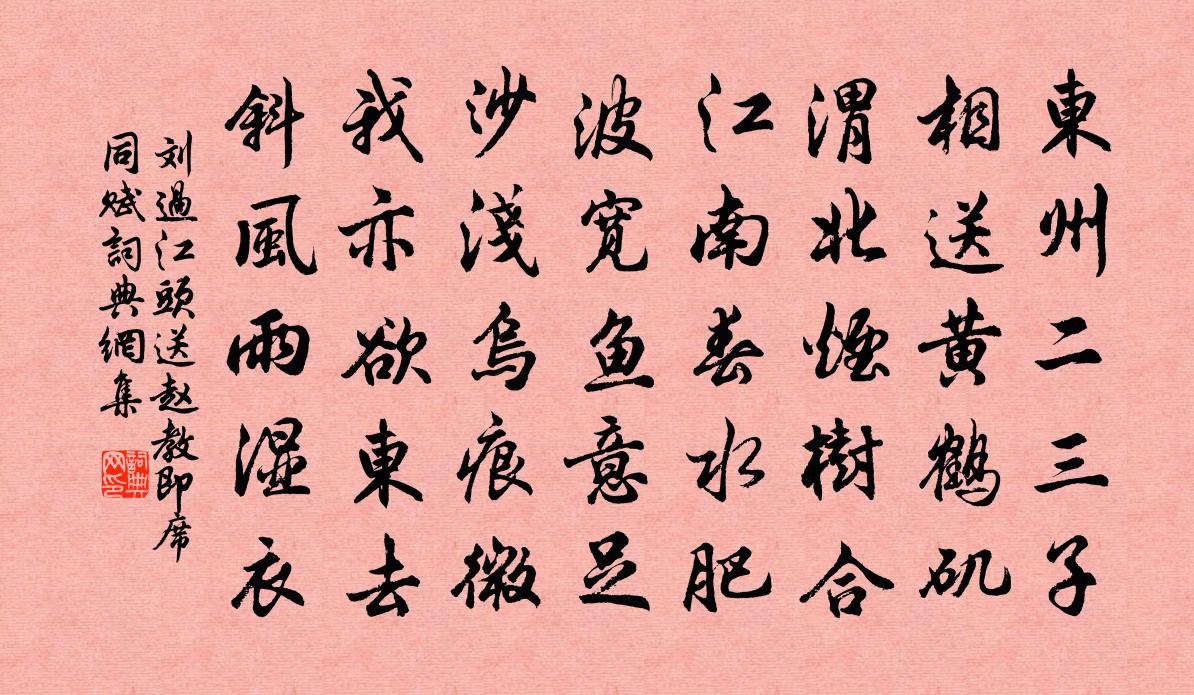 東州二三子
相送黄鶴矶
渭北煙樹合
江南春水肥
波宽鱼意足
沙淺鳥痕微
我亦欲東去
斜風雨湿衣
刘過江頭送赵教即席
同赋詞典網集
詞典网印